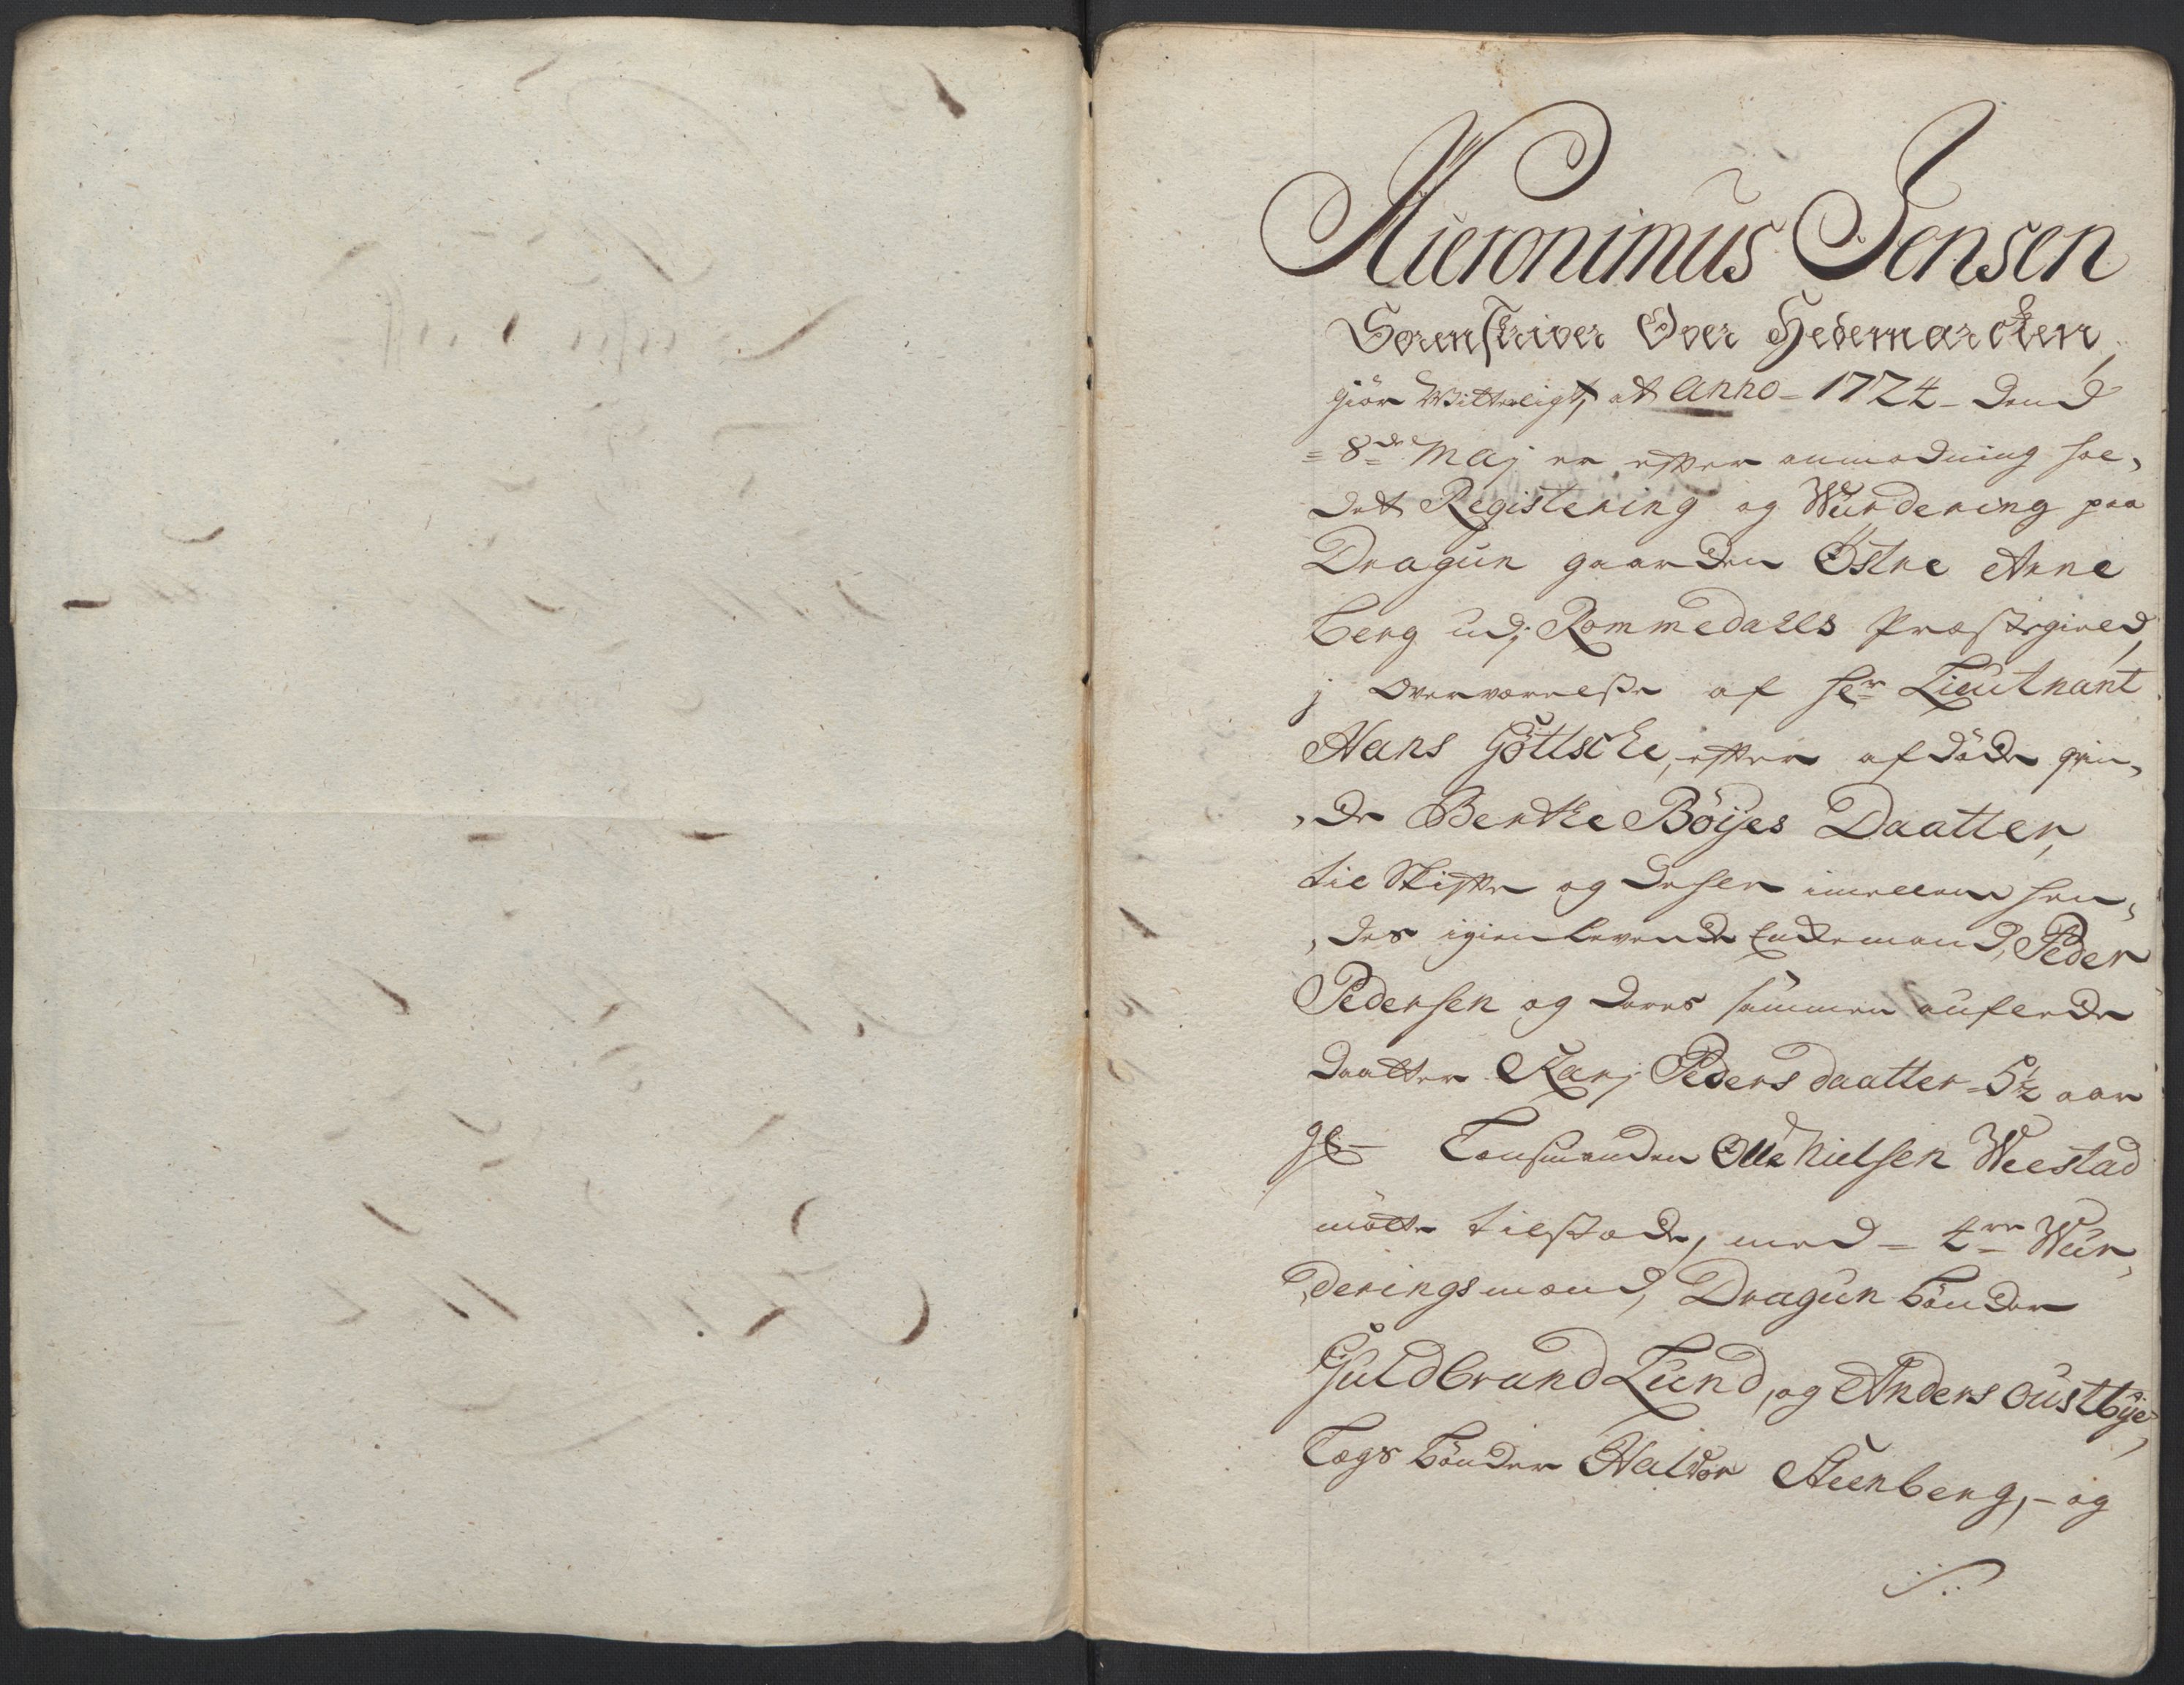 Hieronimus Jensen
Sorenskriver Over Hedemarcken,
giör Witterligt, at Anno 1724 dend
= 8de Maj er efter anmodning hol,
det Registering og Wurdering paa
Dragun gaarden Östre Arne
berg udj Rommedalls Præstegield,
j Overværelse af Hr Lieutnant
Hans Göttsche, efter afdöde qvin,
,de Berthe Böijes Daatter,
til Skifte og deeling imellem hen,
,des igienlevende Enckemand, Peder
Pedersen og deres sammen auflede
daatter Karj Peders daatter 5½ aar
gl. Lensmanden Olle Nielsen Weestad
mötte tilstæde, med = 4re Wur,
,derings mænd, Dragun bönder
Guldbrand Lund, og Anders Oustbÿe,
Legs bönder Haldor Steenberg, og